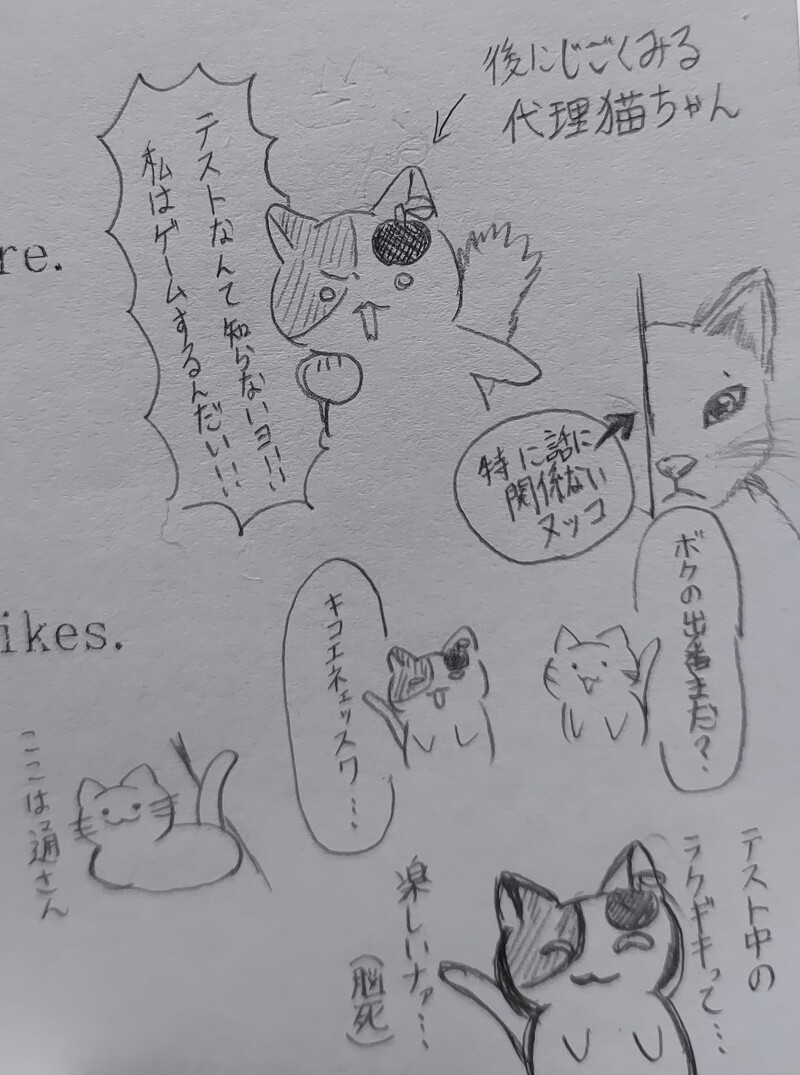 後にじごくみる
代理猫ちゃん
テストなんて知らないヨ!!
私はゲームするんだい!!
re.
特に話に
関係ない
ヌッコ
ボクの出番まだ?
キコエネェッスワ…
ikes.
ここは通さん
テスト中の
ラクガキって…
楽しいナァ…
(脳死)